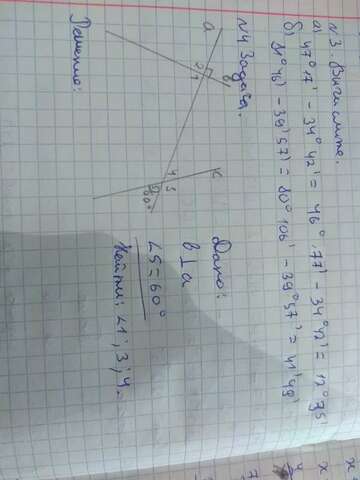 №3. Вычислите.
а) 47°17' - 34°42' = 46°77' - 34°42' = 12°35'
б) 81°46' - 39°57' = 80°106' - 39°57' = 41°49'
№4 Задача.
a
b
2
1
c
4
5
60°
Дано:
b⊥a
∠5=60°
Найти: ∠1; 3; 4.
Решение: